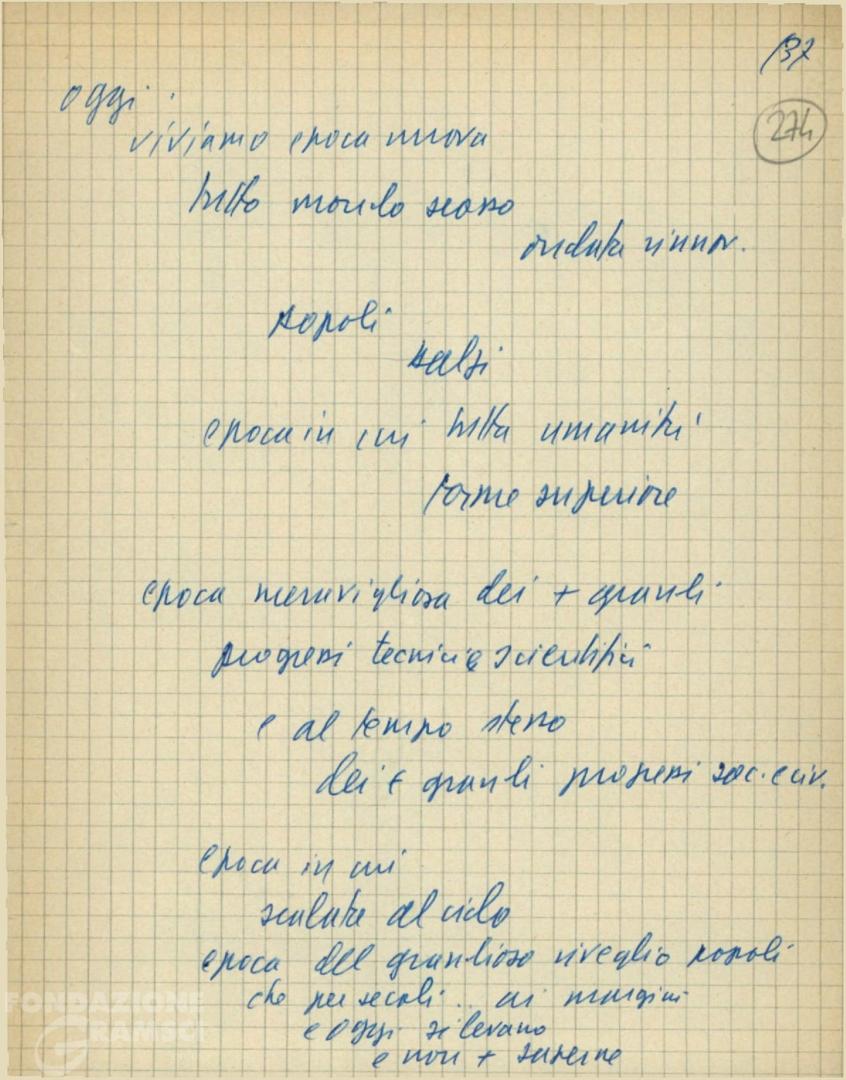 137
274
oggi :
viviamo epoca nuova
tutto mondo scosso
ondata rinnov.
popoli
balzi
epoca in cui tutta umanità
forme superiore
epoca meravigliosa dei + grandi
progressi tecnici e scientifici
e al tempo stesso
dei + grandi progressi soc. e civ.
epoca in cui
scalata al cielo
epoca del grandioso risveglio popoli
che per secoli .. ai margini
e oggi si levano
e non +
FONDAZIONE
GRAMSCI